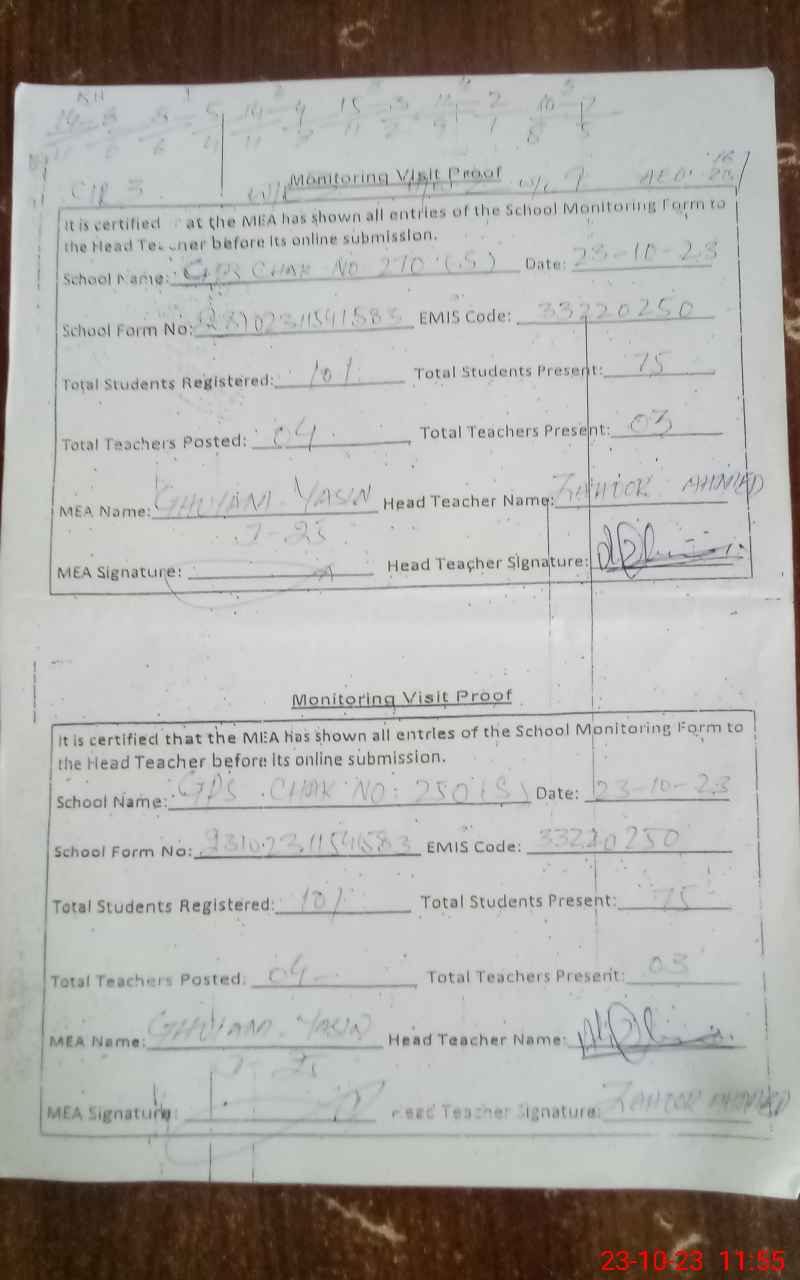 Monitoring Visit Proof
It is certified at the MEA has shown all entries of the School Monitoring Form to
the Head Teacher before its online submission.
School Name: GPS CHAK NO 270 (S) Date: 23-10-23
School Form No: EMIS Code: 33220250
Total Students Registered: 101 Total Students Present: 75
Total Teachers Posted: 04 Total Teachers Present: 03
MEA Name: GHULAM YASIN Head Teacher Name: ZAHOOR AHMED
MEA Signature: Head Teacher Signature:
Monitoring Visit Proof
It is certified that the MEA has shown all entries of the School Monitoring Form to
the Head Teacher before its online submission.
School Name: GPS CHAK NO: 250 (S) Date: 23-10-23
School Form No: EMIS Code: 33220250
Total Students Registered: 101 Total Students Present: 75
Total Teachers Posted: 04 Total Teachers Present: 03
MEA Name: GHULAM YASIN Head Teacher Name:
MEA Signature: Head Teacher Signature: ZAHOOR AHMED
23-10-23 11:55